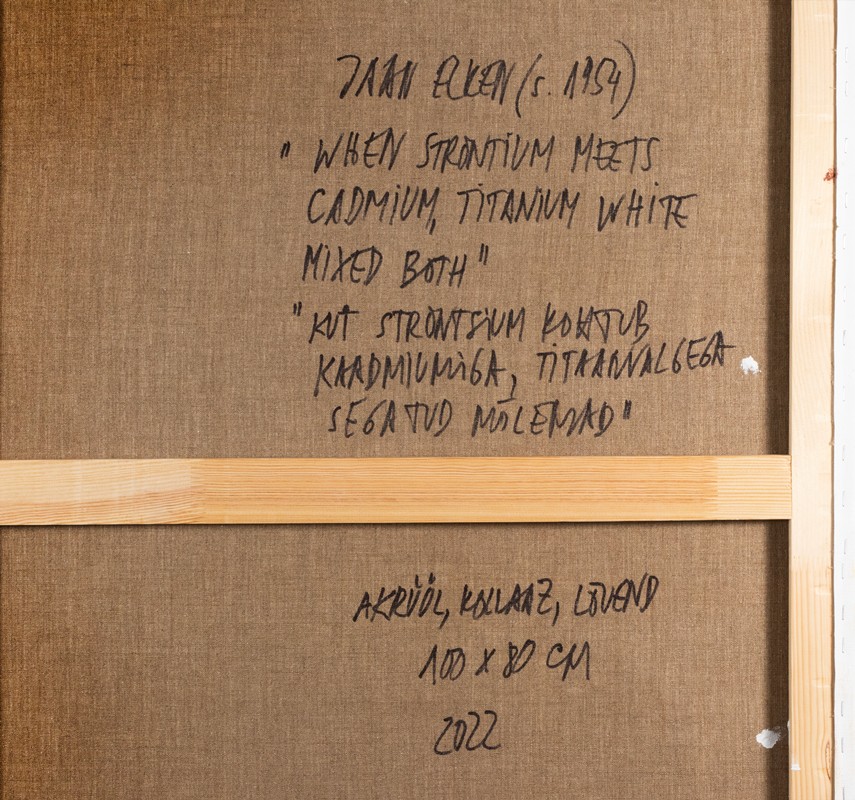 JAAN ELKEN (s. 1954)
" WHEN STRONTIUM MEETS
CADMIUM, TITANIUM WHITE
MIXED BOTH"
"KUI STRONTSIUM KOHTUB
KAADMIUMIGA, TITAANVALGEGA
SEGATUD MÕLEMAD"
AKRÜÜL, KOLLAAZ, LÕUEND
100 X 80 CM
2022